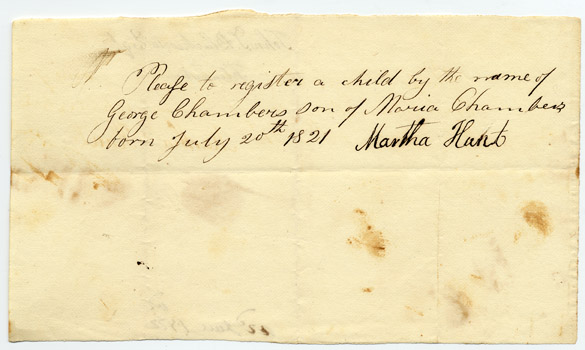 Please to register a child by the name of
George Chambers son of Maria Chambers
born July 20th 1821 Martha Hunt